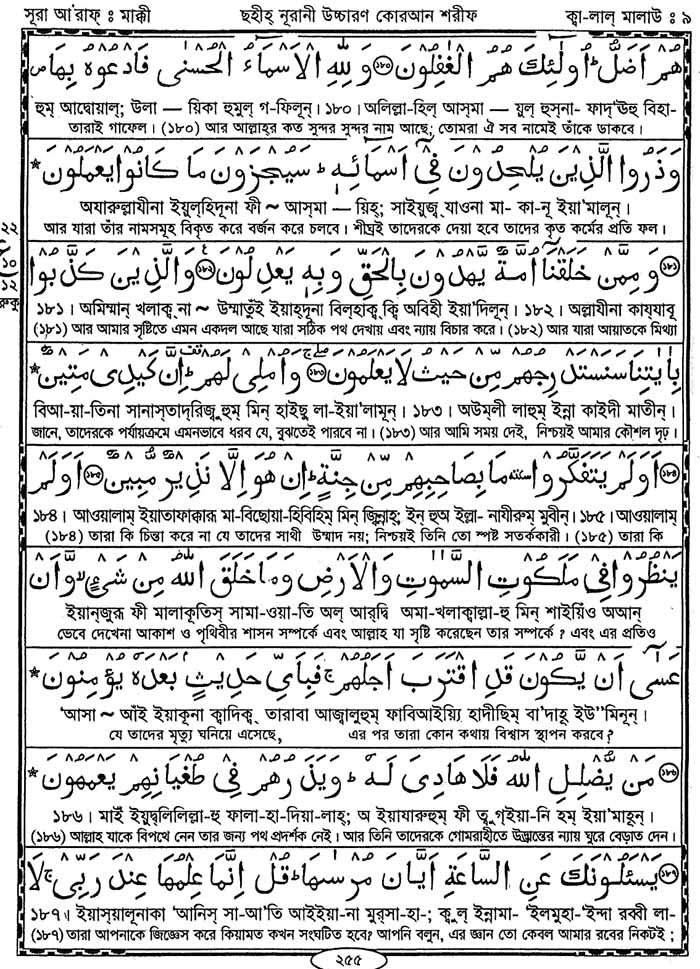 সূরা আ'রাফ্ : মাক্কী ছহীহ্ নূরানী উচ্চারণ কোরআন শরীফ ক্বা-লাল্ মালাউ : ৯
هُمْ اَضَلُّ ؕ اُولٰٓئِكَ هُمُ الْغٰفِلُوْنَ ﴿۱۸۰﴾ وَلِلّٰهِ الْاَسْمَآءُ الْحُسْنٰى فَادْعُوْهُ بِهَا ۪
হুম্ আদ্বোয়াল্; উলা — য়িকা হুমুল্ গ-ফিলূন্। ১৮০। অলিল্লা-হিল্ আস্মা — য়ুল্ হুস্না- ফাদ্'ঊহু বিহা-
তারাই গাফেল। (১৮০) আর আল্লাহ্‌র কত সুন্দর সুন্দর নাম আছে; তোমরা ঐ সব নামেই তাঁকে ডাকবে।
وَذَرُوا الَّذِيْنَ يُلْحِدُوْنَ فِيْۤ اَسْمَآئِهٖ ؕ سَيُجْزَوْنَ مَا كَانُوْا يَعْمَلُوْنَ *
অযারুল্লাযীনা ইয়ুল্‌হিদূনা ফী ~ আস্‌মা — য়িহ্; সাইয়ুজ্ যাওনা মা- কা-নূ ইয়া'মালূন্।
আর যারা তাঁর নামসমূহ বিকৃত করে বর্জন করে চলবে। শীঘ্রই তাদেরকে দেয়া হবে তাদের কৃত কর্মের প্রতি ফল।
২২
১০
১২
রুকূ
﴿۱۸۱﴾ وَمِمَّنْ خَلَقْنَاۤ اُمَّةٌ يَّهْدُوْنَ بِالْحَقِّ وَبِهٖ يَعْدِلُوْنَ ﴿۱۸۲﴾ وَالَّذِيْنَ كَذَّبُوْا
১৮১। অমিম্মান্ খলাক্ব্‌না ~ উম্মাতুঁই ইয়াহ্‌দূনা বিল্‌হাক্বু ক্বি অবিহী ইয়া'দিলূন্। ১৮২। অল্লাযীনা কায্‌যাবূ
(১৮১) আর আমার সৃষ্টিতে এমন একদল আছে যারা সঠিক পথ দেখায় এবং ন্যায় বিচার করে। (১৮২) আর যারা আয়াতকে মিথ্যা
بِاٰيٰتِنَا سَنَسْتَدْرِجُهُمْ مِّنْ حَيْثُ لَا يَعْلَمُوْنَ ﴿۱۸۳﴾ وَاُمْلِيْ لَهُمْ ؕ اِنَّ كَيْدِيْ مَتِيْنٌ *
বিআ-য়া-তিনা সানাস্‌তাদ্‌রিজু্‌হুম্ মিন্ হাইছু লা-ইয়া'লামূন্। ১৮৩। অউম্‌লী লাহুম্ ইন্না কাইদী মাতীন্।
জানে, তাদেরকে পর্যায়ক্রমে এমনভাবে ধরব যে, বুঝতেই পারবে না। (১৮৩) আর আমি সময় দেই, নিশ্চয়ই আমার কৌশল দৃঢ়।
﴿۱۸۴﴾ اَوَلَمْ يَتَفَكَّرُوْا سكتة مَا بِصَاحِبِهِمْ مِّنْ جِنَّةٍ ؕ اِنْ هُوَ اِلَّا نَذِيْرٌ مُّبِيْنٌ ﴿۱۸۵﴾ اَوَلَمْ
১৮৪। আওয়ালাম্ ইয়াতাফাক্কারূ মা-বিছোয়া-হিবিহিম্ মিন্ জিন্নাহ্; ইন্ হুঅ ইল্লা- নাযীরুম্ মুবীন্। ১৮৫। আওয়ালাম্
(১৮৪) তারা কি চিন্তা করে না যে তাদের সাথী উম্মাদ নয়; নিশ্চয়ই তিনি তো স্পষ্ট সতর্ককারী। (১৮৫) তারা কি
يَنْظُرُوْا فِيْ مَلَكُوْتِ السَّمٰوٰتِ وَالْاَرْضِ وَمَا خَلَقَ اللّٰهُ مِنْ شَيْءٍ ۙ وَّاَنْ
ইয়ান্‌জুরূ ফী মালাকূতিস্ সামা-ওয়া-তি অল্ আর্‌দ্বি অমা-খলাক্বাল্লা-হু মিন্ শাইয়িঁও অআন্
ভেবে দেখেনা আকাশ ও পৃথিবীর শাসন সম্পর্কে এবং আল্লাহ যা সৃষ্টি করেছেন তার সম্পর্কে ? এবং এর প্রতিও
عَسٰۤى اَنْ يَّكُوْنَ قَدِ اقْتَرَبَ اَجَلُهُمْ ۚ فَبِاَيِّ حَدِيْثٍۭ بَعْدَهٗ يُؤْمِنُوْنَ *
'আসা ~ আঁই ইয়াকূনা ক্বাদিক্ব্ তারাবা আজ্বালুহুম্ ফাবিআইয়্যি হাদীছিম্ বা'দাহূ ইউ"মিনূন্।
যে তাদের মৃত্যু ঘনিয়ে এসেছে, এর পর তারা কোন কথায় বিশ্বাস স্থাপন করবে?
﴿۱۸۶﴾ مَنْ يُّضْلِلِ اللّٰهُ فَلَا هَادِيَ لَهٗ ؕ وَيَذَرُهُمْ فِيْ طُغْيَانِهِمْ يَعْمَهُوْنَ *
১৮৬। মাইঁ ইয়ুদ্বলিলিল্লা-হু ফালা-হা-দিয়া-লাহ্; অ ইয়াযারুহুম্ ফী ত্বুগ্ইয়া-নি হিম্ ইয়া'মাহূন্।
(১৮৬) আল্লাহ যাকে বিপথে নেন তার জন্য পথ প্রদর্শক নেই। আর তিনি তাদেরকে গোমরাহীতে উদ্ভ্রান্তের ন্যায় ঘুরে বেড়াত দেন।
﴿۱۸۷﴾ يَسْئَلُوْنَكَ عَنِ السَّاعَةِ اَيَّانَ مُرْسٰىهَا ؕ قُلْ اِنَّمَا عِلْمُهَا عِنْدَ رَبِّيْ ۚ لَا
১৮৭। ইয়াস্‌য়ালূনাকা 'আনিস্ সা-আ'তি আইইয়া-না মুর্‌সা-হা-; ক্বুল্ ইন্নামা- 'ইলমুহা-'ইন্দা রব্বী লা-
(১৮৭) তারা আপনাকে জিজ্ঞেস করে কিয়ামত কখন সংঘটিত হবে? আপনি বলুন, এর জ্ঞান তো কেবল আমার রবের নিকটই ;
২৫৫